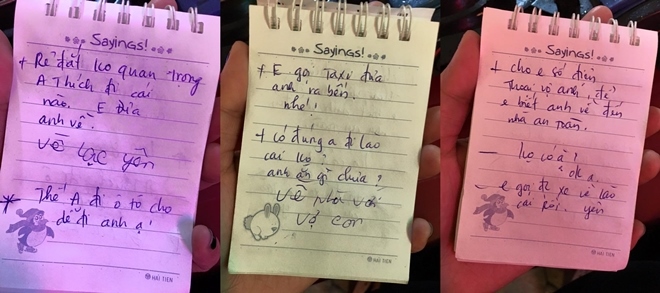 Sayings!
+ Rẻ đắt ko quan trọng
A Thích đi cái
nào. E Đưa
anh về.
Về Lạc yên
* Thế A đi ô tô cho
dễ đi anh ạ!
HẢI TIẾN
Sayings!
+ E gọi Taxi đưa
anh ra bến.
nhé!
+ Có đúng a đi lào
cai ko?
anh ăn gì chưa?
Về Nhà với
vợ con
HẢI TIẾN
Sayings!
+ cho e số điện
thoại vợ anh, để
e biết anh về đến
nhà an toàn.
- ko có à?
ok a.
- e gọi đc xe về lào
cai rồi. yên
HẢI TIẾN